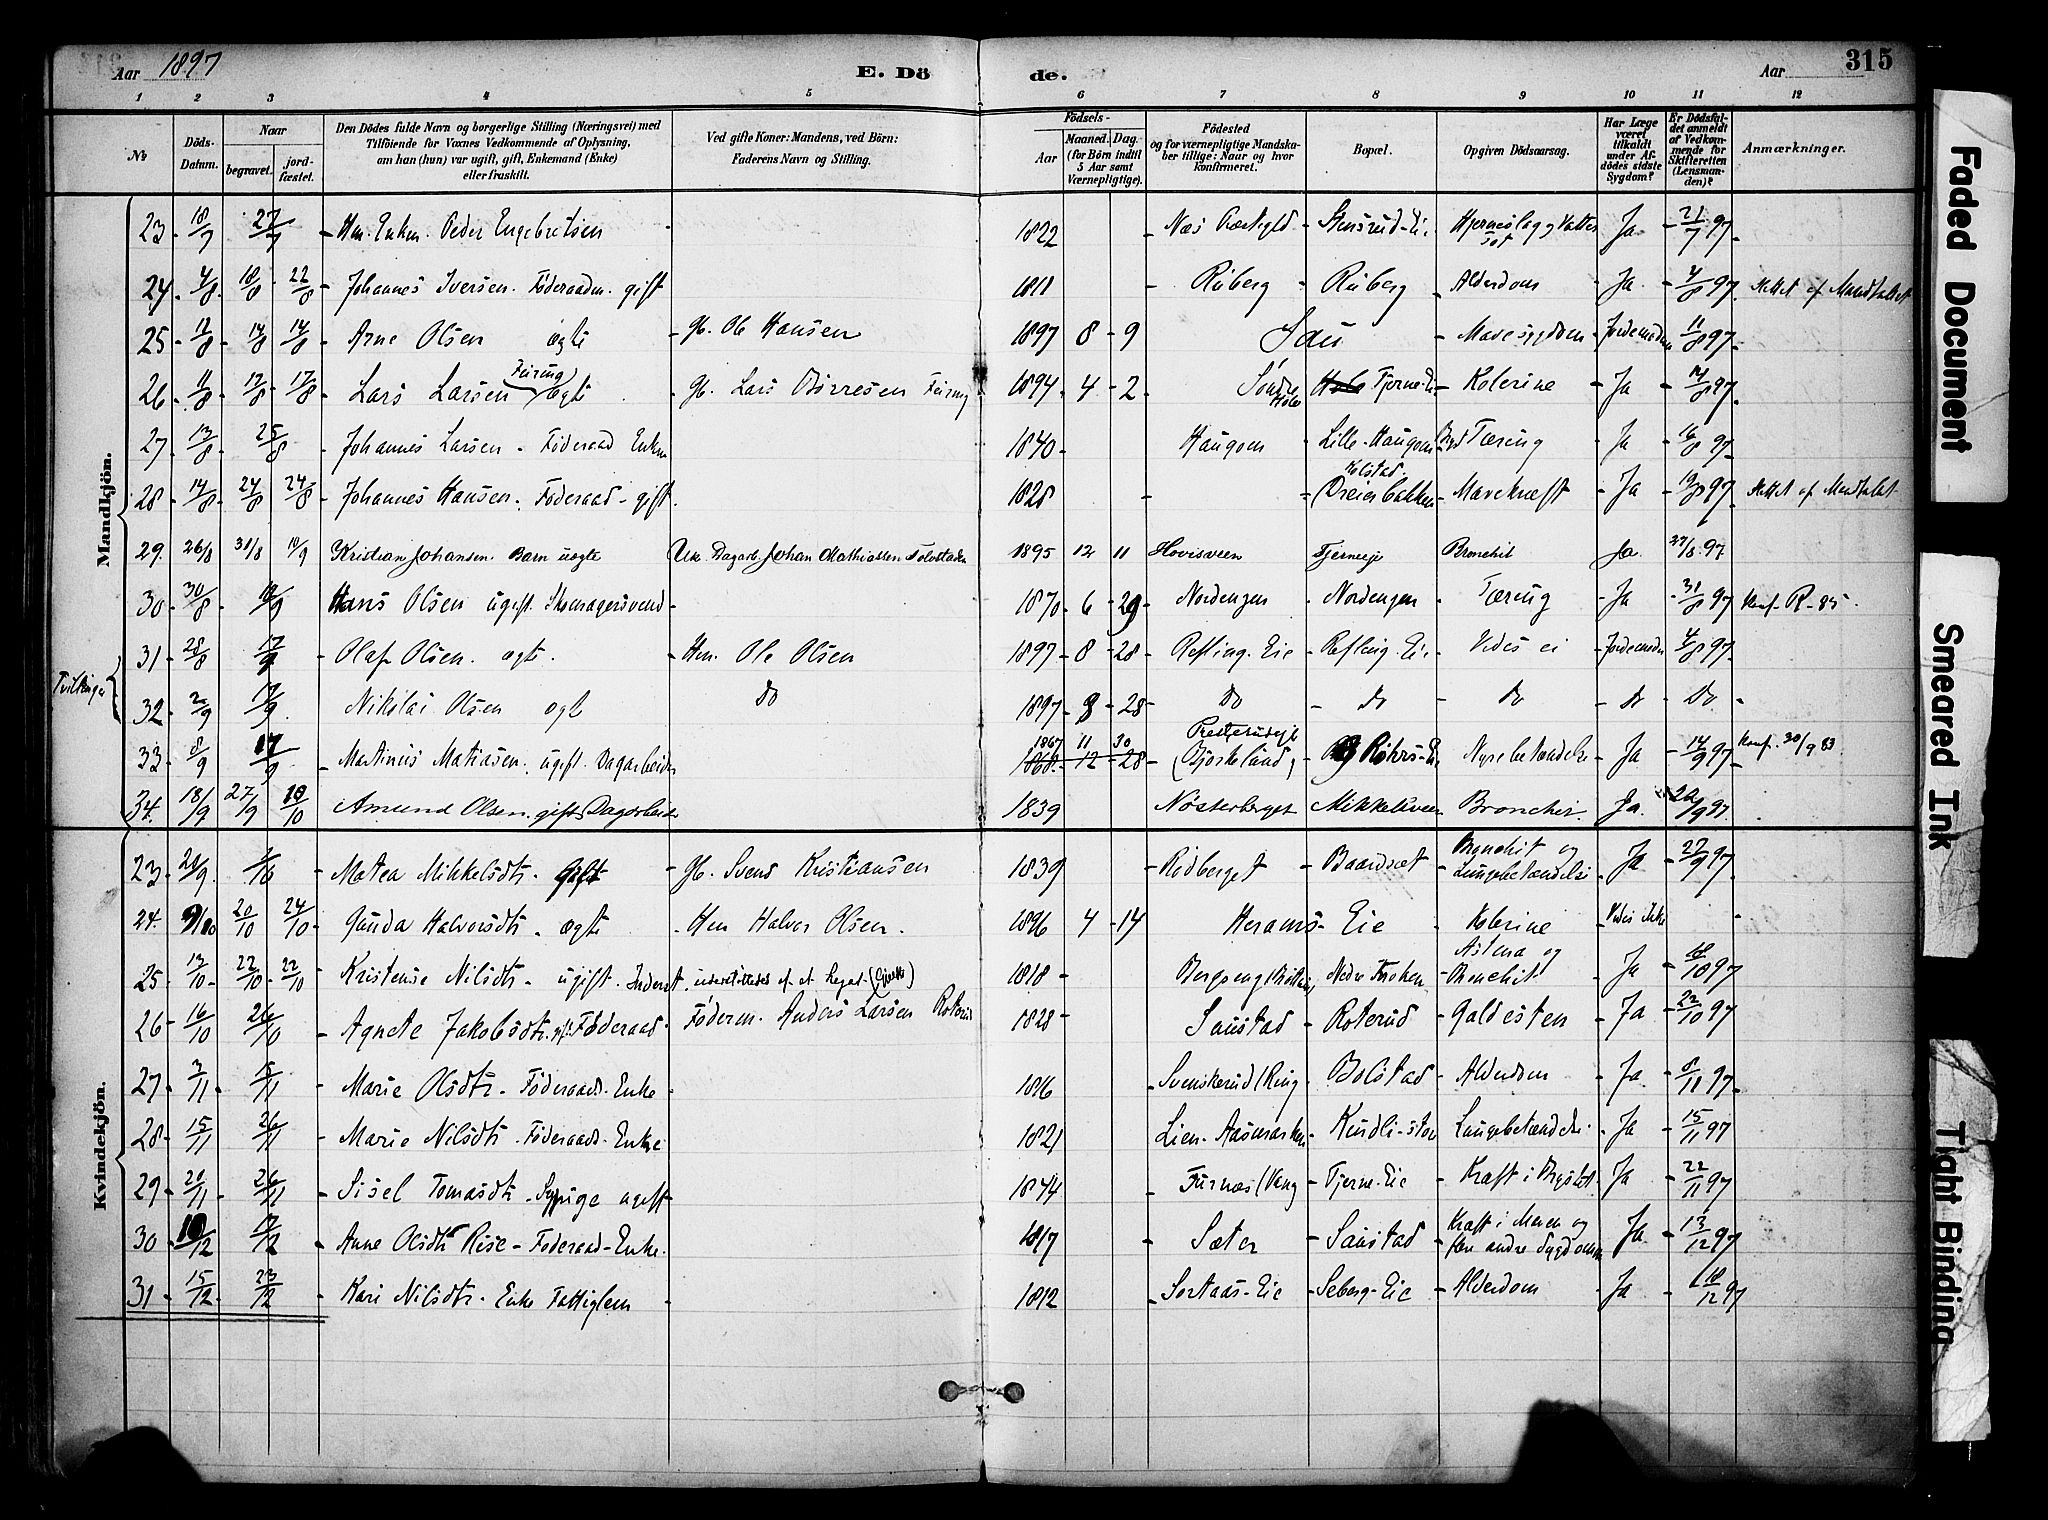 Aar 1897 E. Dö de. Aar 315
1 2 3 4 5 6 7 8 9 10 11 12
No. Döds-Datum. Naar begravet. jord-fæstet. Den Dödes fulde Navn og borgerlige Stilling (Næringsvei) med Tilföiende for Voxnes Vedkommende af Oplysning, om han (hun) var ugift, gift, Enkemand (Enke) eller fraskilt. Ved gifte Koner: Mandens, ved Börn: Faderens Navn og Stilling. Födsels- Aar Maaned. Dag. (for Börn indtil 5 Aar samt Værnepligtige). Födested og for værnepligtige Mandskaber tillige: Naar og hvor konfirmeret. Bopæl. Opgiven Dödsaarsag. Har Læge været tilkaldt under Afdödes sidste Sygdom? Er Dödsfaldet anmeldt af Vedkommende for Skifteretten (Lensmanden)? Anmærkninger.
Mandkjön.
23 18/7 27/7 Hm. Enkm. Peder Engebretsen 1822 Næs Præstgld Stensrud-Eie Hjerneslag Ja 21/7 97
24 4/8 18/8 22/8 Johannes Iversen. Föderaadm. gift 1811 Ruberg Ruberg Alderdom Ja 7/8 97
25 12/8 14/8 14/8 Arne Olsen ægte Gb. Ole Hansen 1897 8 9 Sau Mavesygdom Jordemoder 11/8 97
26 11/8 17/8 17/8 Lars Larsen Feiring ægte Gb. Lars Börresen Feiring 1894 4 2 Söndre Tjerne-Eie Kolerine Ja 14/8 97
27 13/8 25/8 Johannes Larsen Föderaad Enkm 1840 Haugom Lille-Haugom Tæring Ja 16/8 97
28 14/8 24/8 24/8 Johannes Hansen. Föderaad gift 1828 Bolstad. Dreierbakken Mavekræft Ja 19/8 97
29. 26/8 31/8 10/9 Kristian Johansen. Barn uægte Dagarb. Johan Mathiassen 1895 12 11 Hovisveen Tjerneeje Bronchit Ja. 27/8 97
30 30/8 10/9 Hans Olsen ugift. Skomagersvend 1870 6 29 Nordengen Nordengen Tæring Ja 31/8 97 Konf. R-85.
Tvillinger
31 28/8 17/9 Olaf Olsen. ægte. Hm. Ole Olsen 1897 8 28 Refling. Eie Refling. Eie Vides ei Jordemoder 4/8 97
32 2/9 17/9 Nikolai Olsen ægt do 1897 8 28 do do do do Do
33 8/9 17/9 Martinus Matiasen. ugift. Dagarbeider 1867 11 30 1868 12 28 Presterudeje (Björkelund) Röhrs-Eie Nyrebetændelse Ja 14/9 97 Konf. 30/9 83.
34. 18/9 27/9 10/10 Amund Olsen. gift. Dagarbeider 1839 Nösterberget Mikkelsveen Bronchit. Ja. 22/9 97.
Kvindekjön.
23 21/9. Matea Mikkelsdtr. Gift Gb. Svend Kristiansen 1839 Rödberget Baardset Bronchit og Lungebetændelse Ja 27/9 97
24. 9/10 20/10 24/10 Gunda Halvorsdtr. ægte Hm Halvor Olsen. 1896 4 14 Herams-Eie Kolerine Vides ikke
25 13/10 22/10 22/10 Kristense Nilsdtr. ugift. Inderst. understöttedes af et Legat. 1818 Nedre Astma og Bronchit Ja 18/10 97
26 16/10 26/10 Agnete Jakobsdtr. gft. Föderaad Föderm. Anders Larsen Roterud 1828 Saustad Roterud Galdesten Ja 22/10 97
27 3/11 15/11 Marie Olsdtr. Föderaads. Enke 1816 Svenskerud (Ring Bolstad Alderdom Ja 8/11 97
28 15/11 26/11 Marie Nilsdtr. Föderaads. Enke 1821 Lien. Aasmarken Kindli-stor Lungebetændelse. Ja 15/11 97
29 20/11 26/11 Sisel Tomasdtr. Sypige ugift 1844 Furnæs (Vang Tjerne-Eie Kræft i Brystet. Ja 22/11 97
30 10/12 17/12 Anne Olsdtr Rise. Föderaad-Enke. 1817 Sæter Saustad Kræft i Maven og flere andre Sygdomme Ja 13/12 97
31 15/12 23/12 Kari Nilsdtr. Enke Fattiglem 1812 Sortaas-Eie Seberg-Eie Alderdom Ja 18/12 97
Faded Document
Smeared Ink
Tight Binding